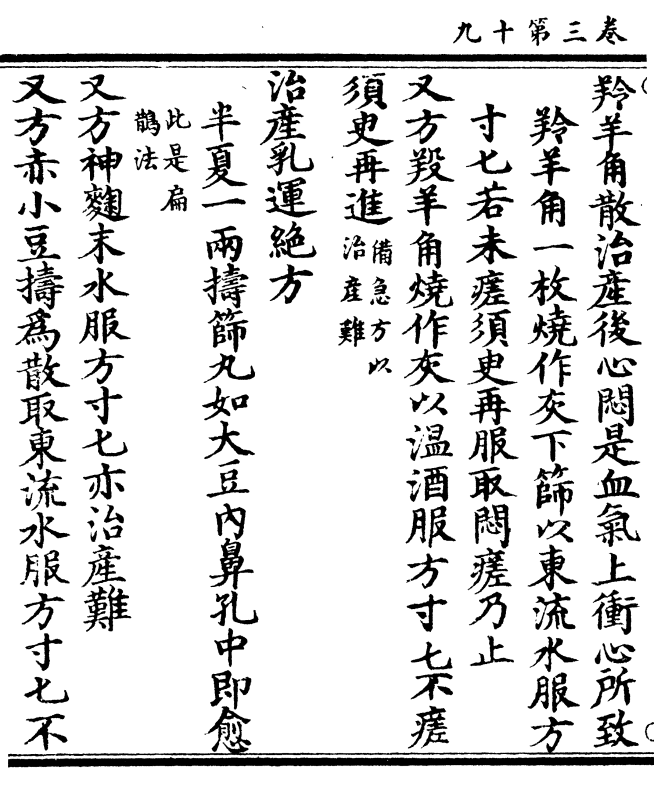 卷三第十九
羚羊角散治產後心悶是血氣上衝心所致
羚羊角一枚燒作灰下篩以東流水服方
寸匕若未瘥須臾再服取悶瘥乃止
又方羖羊角燒作灰以温酒服方寸匕不瘥
須臾再進備急方以
治產難
治產乳運絕方
半夏一兩擣篩丸如大豆內鼻孔中即愈
此是扁
鵲法
又方神麴末水服方寸匕亦治產難
又方赤小豆擣為散取東流水服方寸匕不